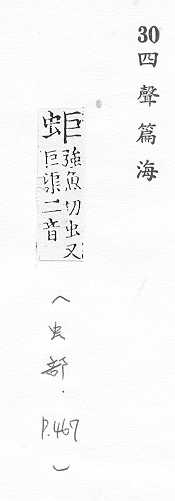 30 四聲篇海
蚷強魚切虫又
巨渠二音
(虫部．P.467)